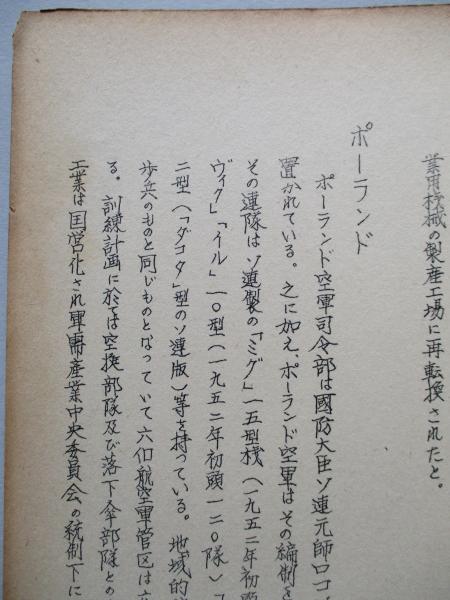 業用機械の製産工場に再転換されたと。
ポーランド
ポーランド空軍司令部は國防大臣ソ連元帥ロコ
置かれている。之に加え、ポーランド空軍はその編制を
その連隊はソ連製の「ミグ」一五型機(一九五二年初頭
ヴィク」「イル」一〇型(一九五二年初頭一二〇隊)「
二型(「ダコタ」型のソ連版)等を持っている。地域的
歩兵のものと同じものとなっていて六個航空軍管区は
る。訓練計画に於ては空挺部隊及び落下傘部隊との
工業は国営化され軍需産業中央委員会の統制下に